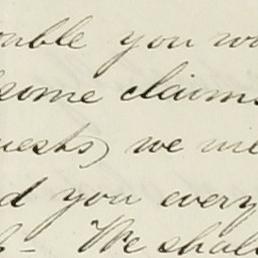 ouble you wi
some claims
uests, we me
d you every
We shal